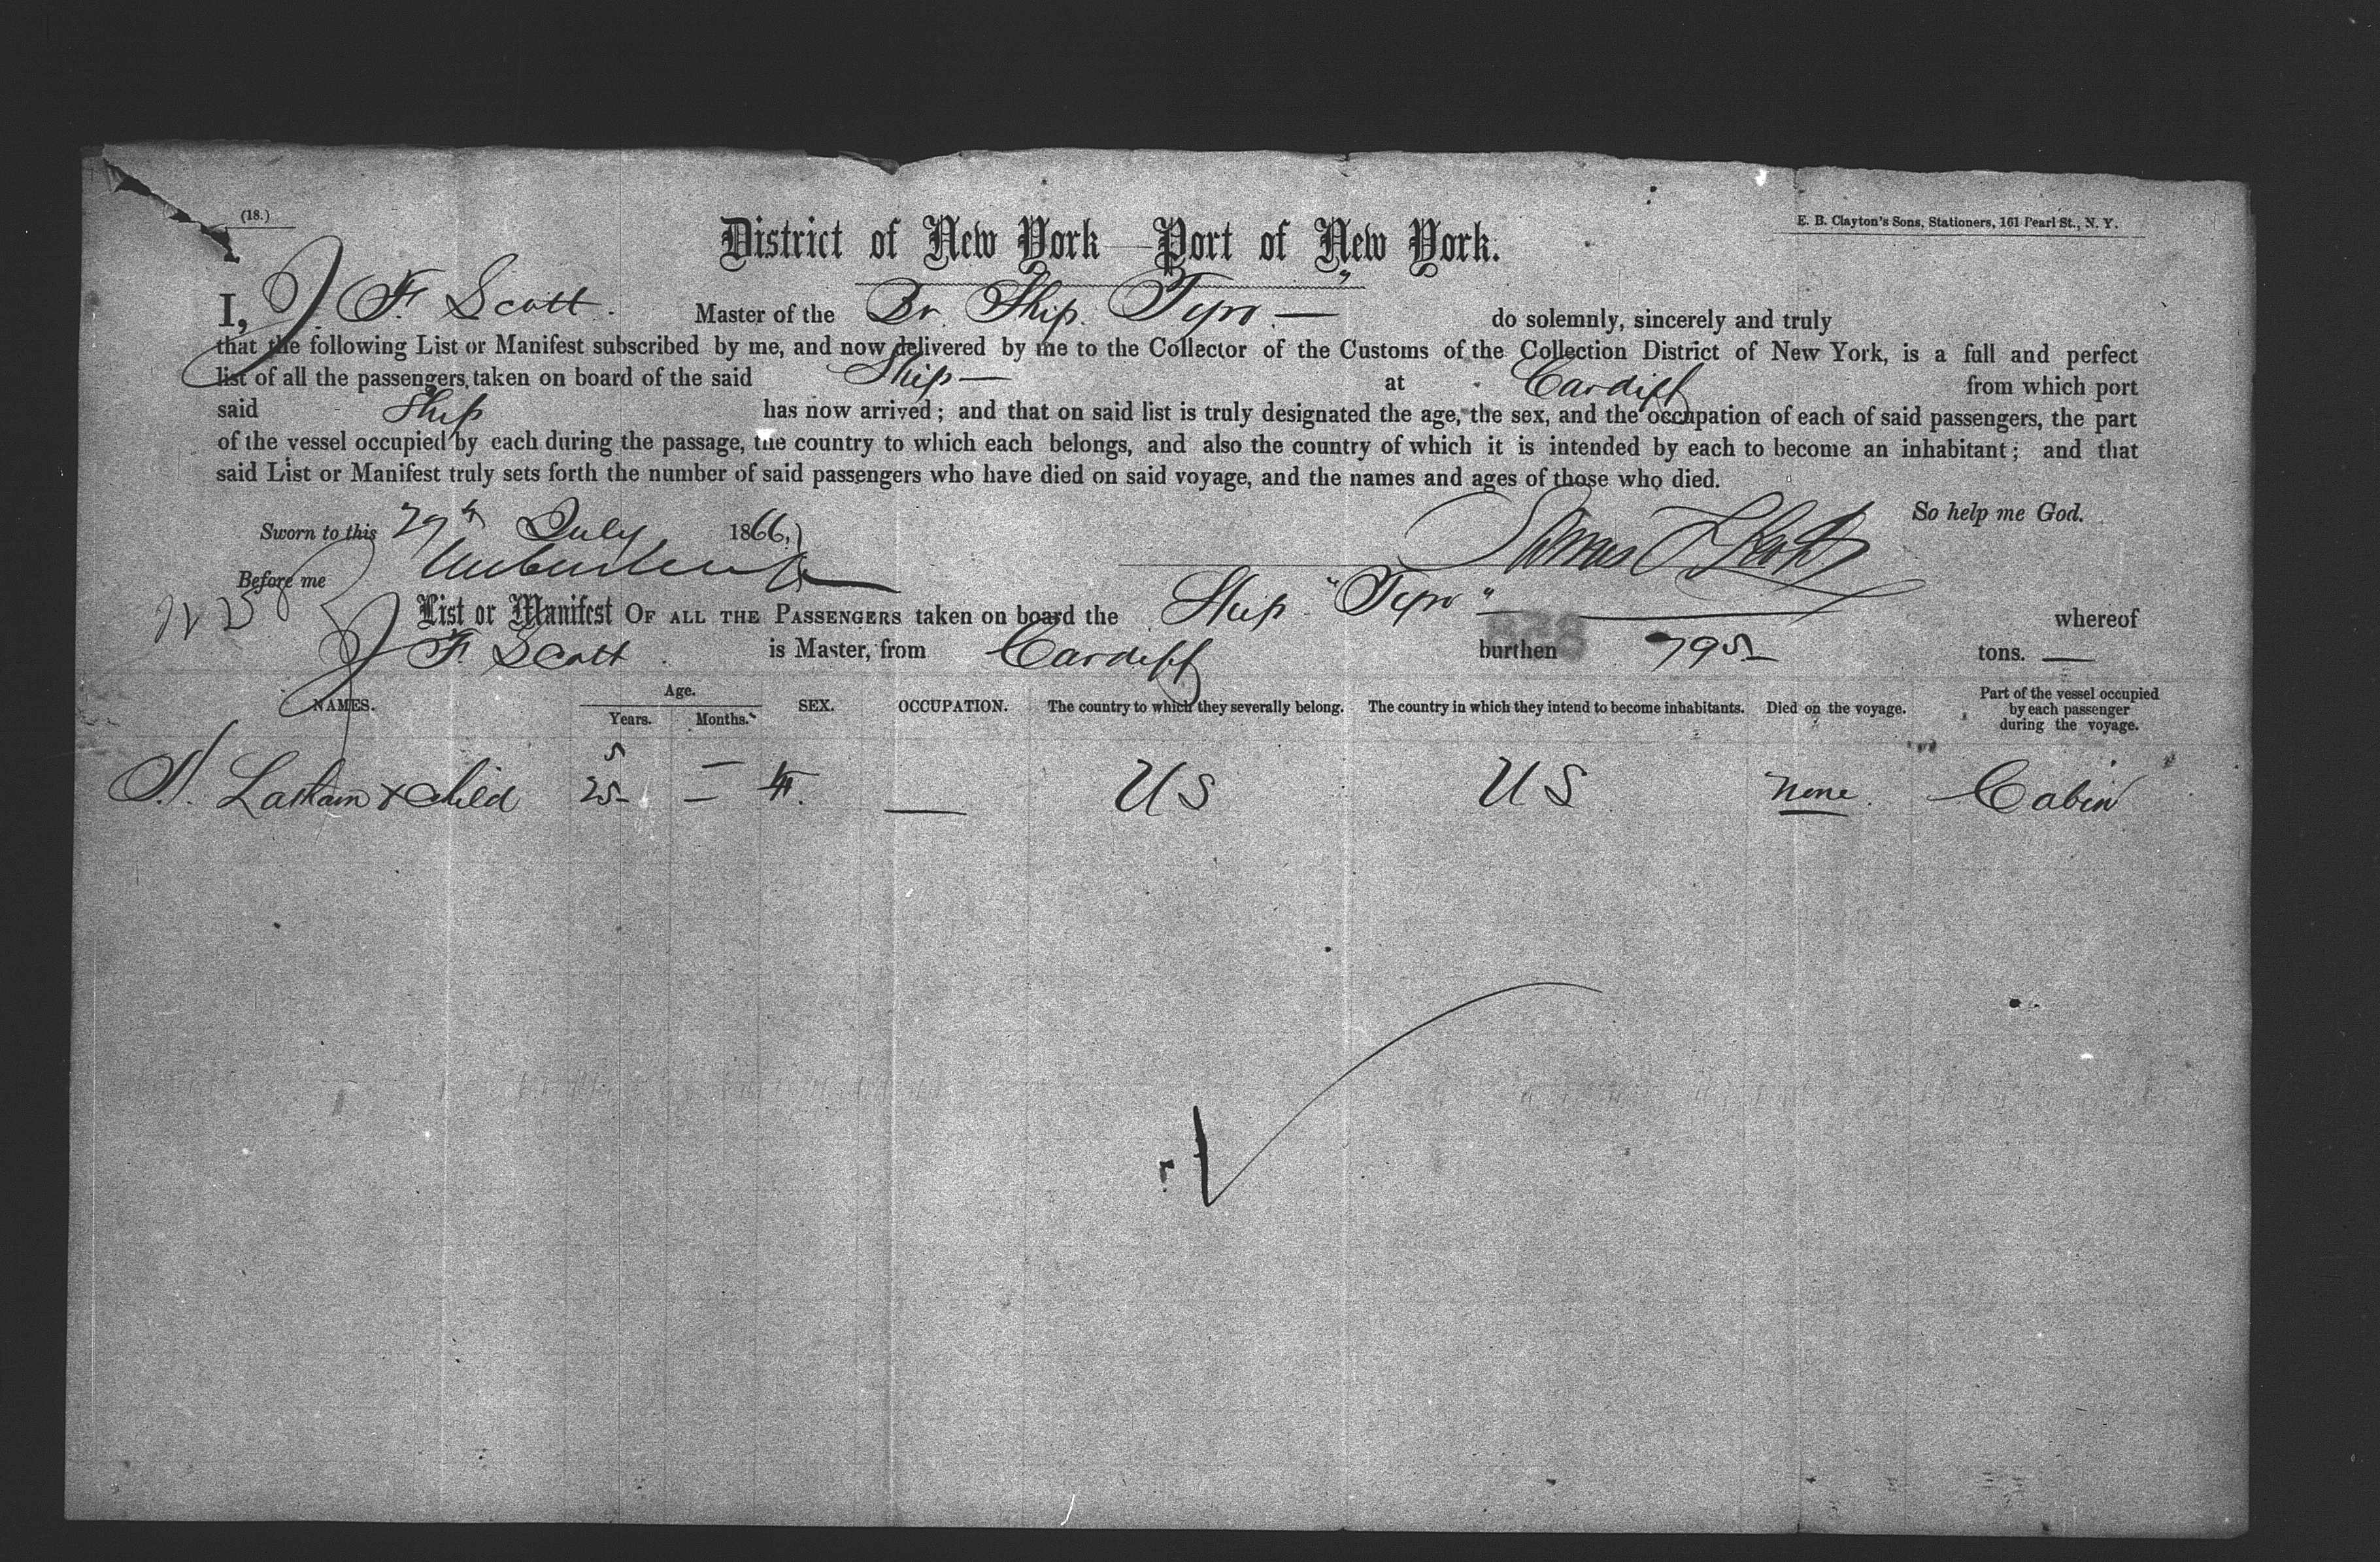 (18.)
E. B. Clayton's Sons, Stationers, 161 Pearl St., N. Y.
District of New York—Port of New York.
I, J. F. Scott. Master of the Br. Ship. "Tyro" — do solemnly, sincerely and truly
that the following List or Manifest subscribed by me, and now delivered by me to the Collector of the Customs of the Collection District of New York, is a full and perfect
list of all the passengers, taken on board of the said Ship — at Cardiff from which port
said Ship has now arrived; and that on said list is truly designated the age, the sex, and the occupation of each of said passengers, the part
of the vessel occupied by each during the passage, the country to which each belongs, and also the country of which it is intended by each to become an inhabitant; and that
said List or Manifest truly sets forth the number of said passengers who have died on said voyage, and the names and ages of those who died.
So help me God.
Sworn to this 29th July 1866,
Before me
858
List or Manifest OF ALL THE PASSENGERS taken on board the Ship "Tyro" whereof
J. F. Scott. is Master, from Cardiff burthen 795 tons. —
NAMES. Age. Years. Months. SEX. OCCUPATION. The country to which they severally belong. The country in which they intend to become inhabitants. Died on the voyage. Part of the vessel occupied by each passenger during the voyage.
5 —
& child 25 — F. — US US None. Cabin